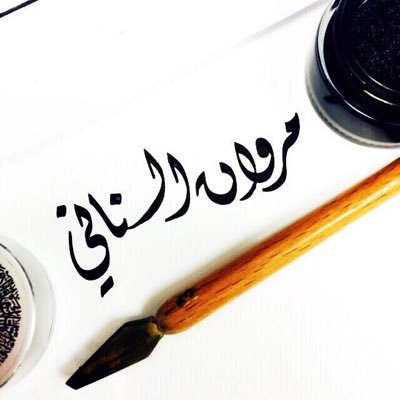 مروان السنافي